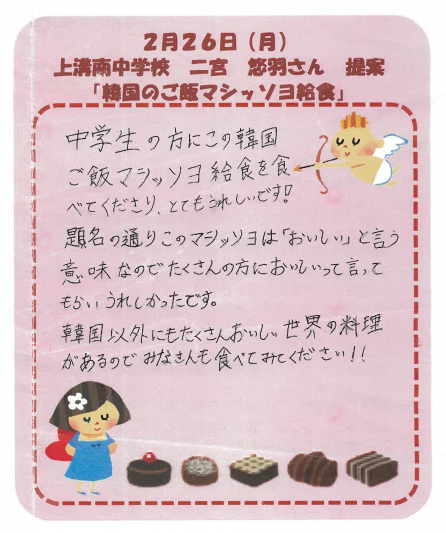 2月26日(月)
上溝南中学校　二宮　悠羽さん　提案
「韓国のご飯マシッソヨ給食」
中学生の方にこの韓国
ご飯マシッソヨ給食を食
べてくださり、とてもうれしいです!
題名の通りこのマシッソヨは「おいしい」と言う
意味なのでたくさんの方においしいって言って
もらいうれしかったです。
韓国以外にもたくさんおいしい世界の料理
があるのでみなさんも食べてみてください!!